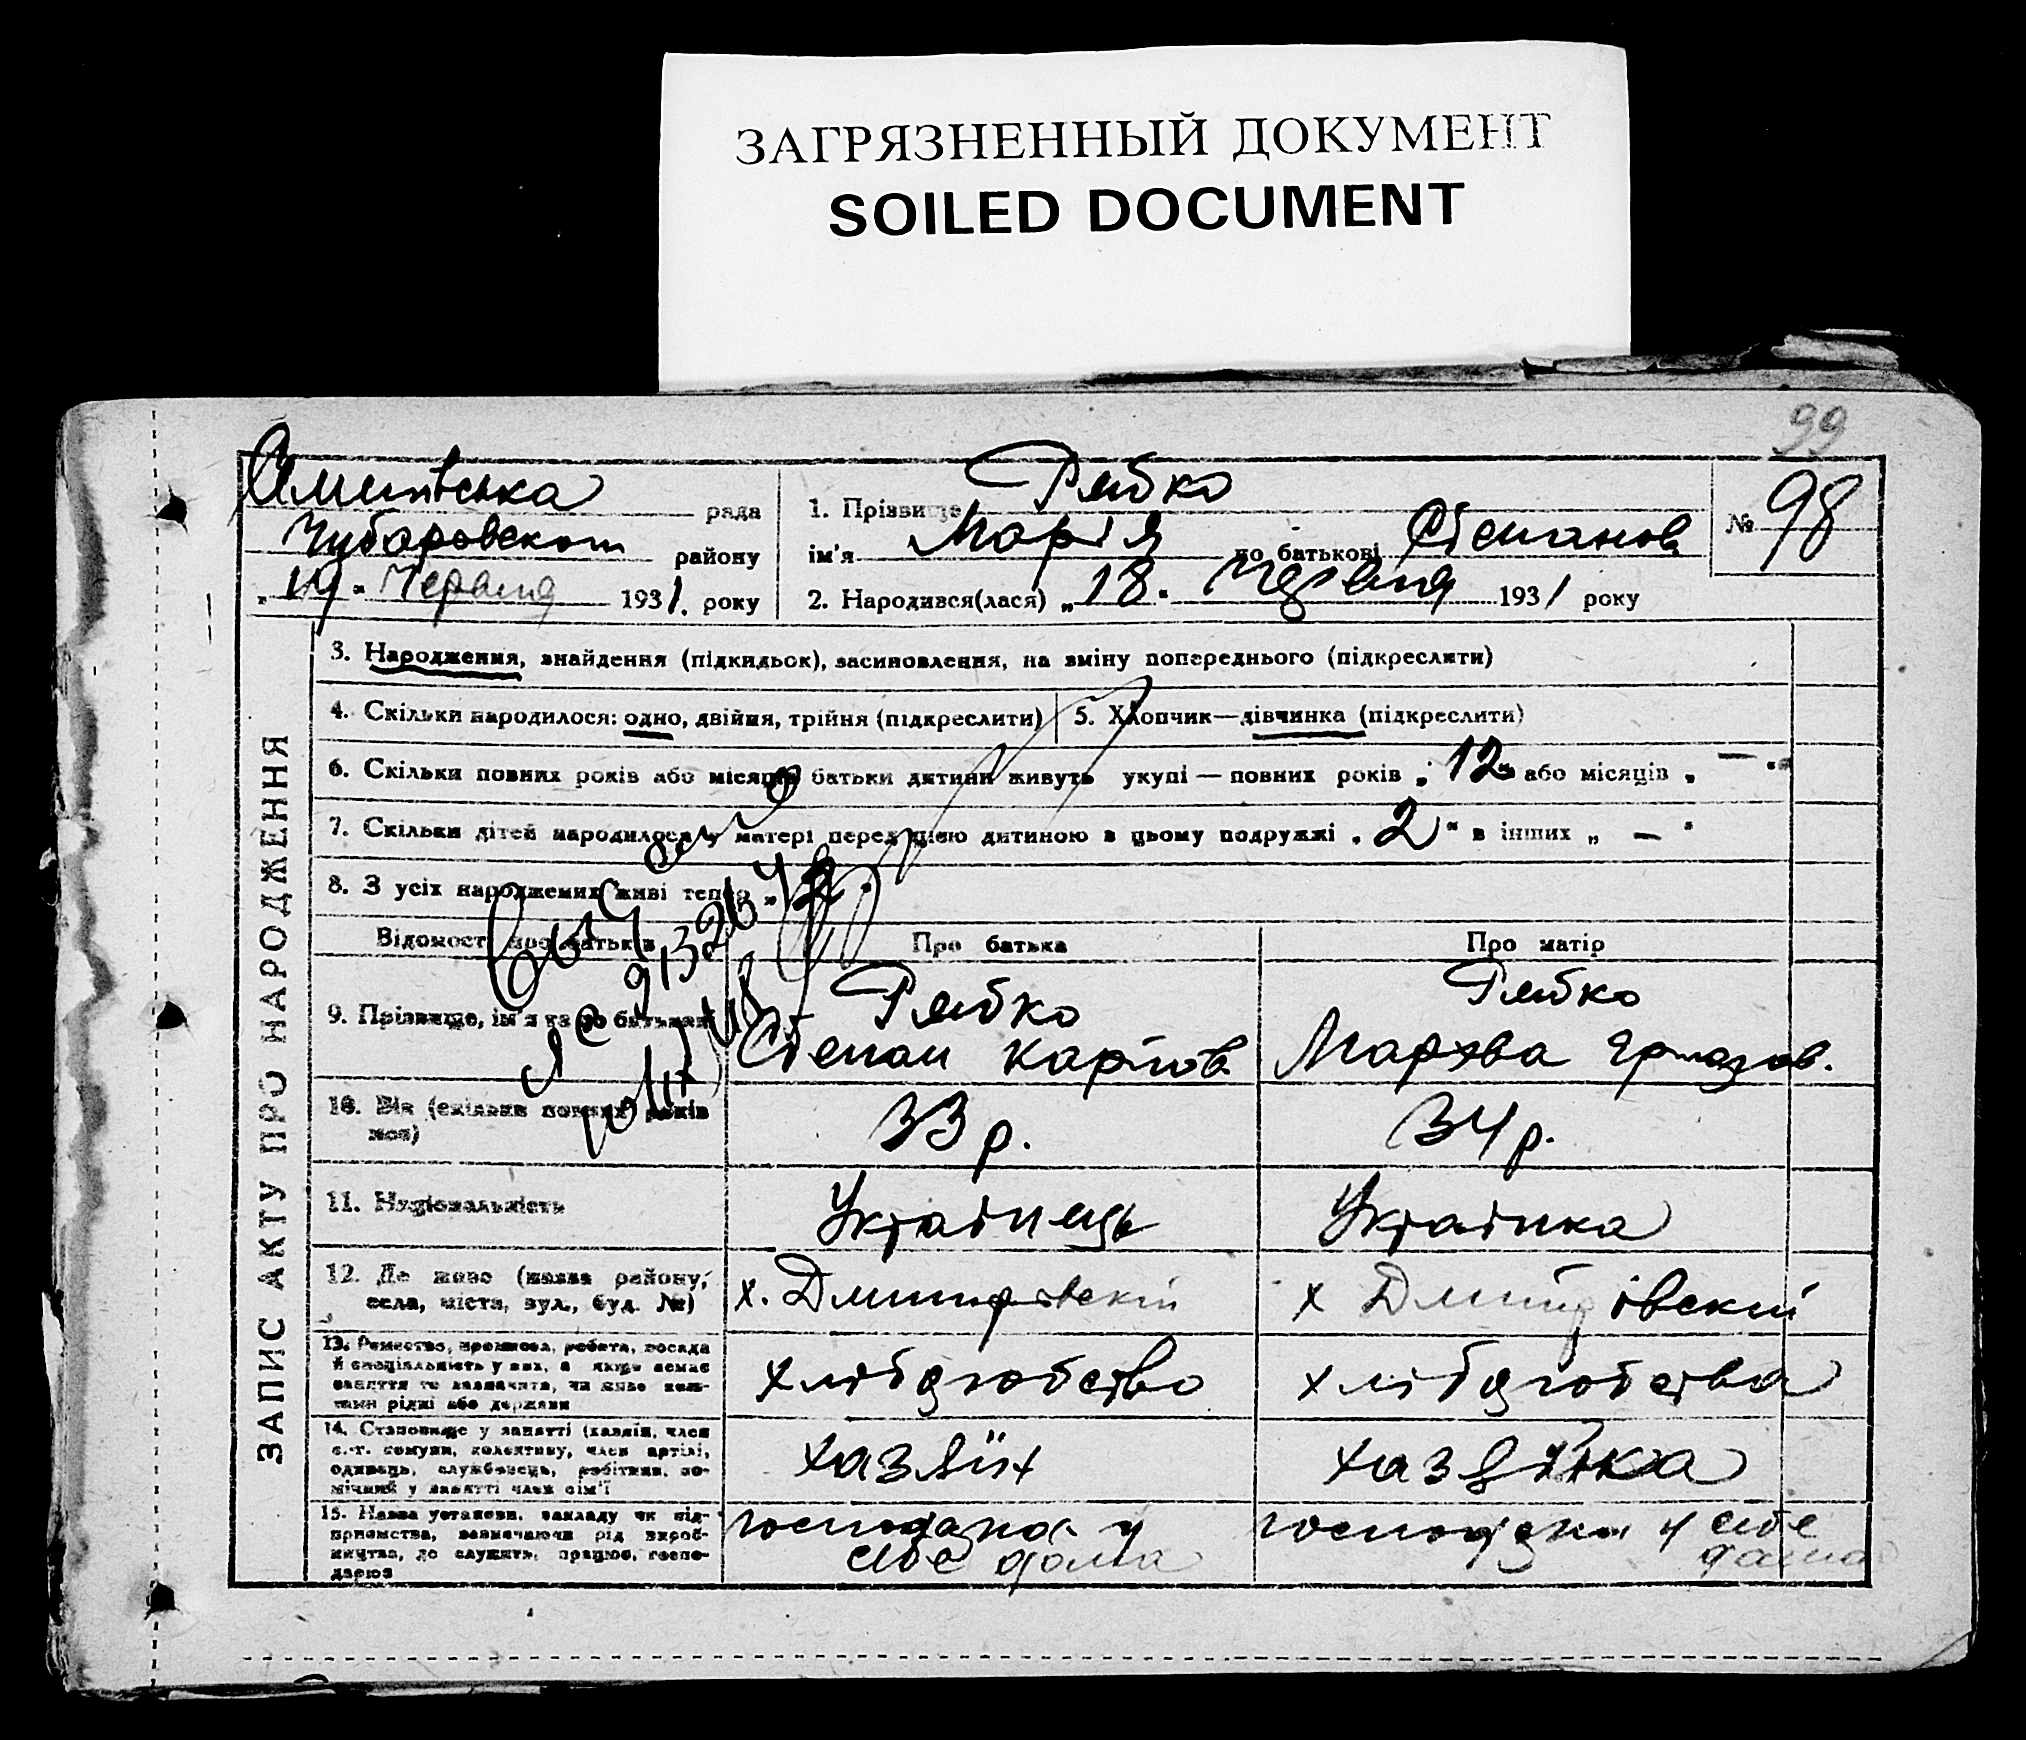 ЗАГРЯЗНЕННЫЙ ДОКУМЕНТ
SOILED DOCUMENT
99
рада
Чубаровского району
„19" Червня 1931. року
1. Прізвище Рябко
ім'я Марія по батькові Степанов
2. Народився(лася) „18" Червня 1931 року
№ 98
ЗАПИС АКТУ ПРО НАРОДЖЕННЯ
3. Народження, знайдення (підкидьок), засиновлення, на зміну попереднього (підкреслити)
4. Скільки народилося: одно, двійня, трійня (підкреслити)
5. Хлопчик—дівчинка (підкреслити)
6. Скільки повних років або місяців батьки дитини живуть укупі — повних років „12" або місяців „—"
7. Скільки дітей народилося у матері перед цією дитиною в цьому подружжі „2" в інших „—"
8. З усіх народжених живі тепер „2"
Відомості про батьків
Про батька
Про матір
9. Прізвище, ім'я та по батькові
Рябко
Степан Карпов.
Рябко
Марфа
10. Вік (скільки повних років
має)
33 р.
34 р.
11. Національність
Українець
Українка
12. Де живе (назва району,
села, міста, вул., буд. №)
х. Дмитровскій
х Дмитрівский
13. Ремество, промисел, робота, посада
й спеціяльність у них, а якщо немає
заняття то зазначити, чи живе кош-
тами рідні або держави
хліборобство
хліборобства
14. Становище у занятті (хазяїн, член
с.-г. комуни, колективу, член артілі,
одинець, службовець, робітник, по-
мічний у занятті член сім'ї
хазяїн
хазяйка
15. Назва установи, закладу чи під-
приємства, зазначаючи рід вироб-
ництва, де служить, працює, госпо-
дарює
у
себе дома
у себе
дома